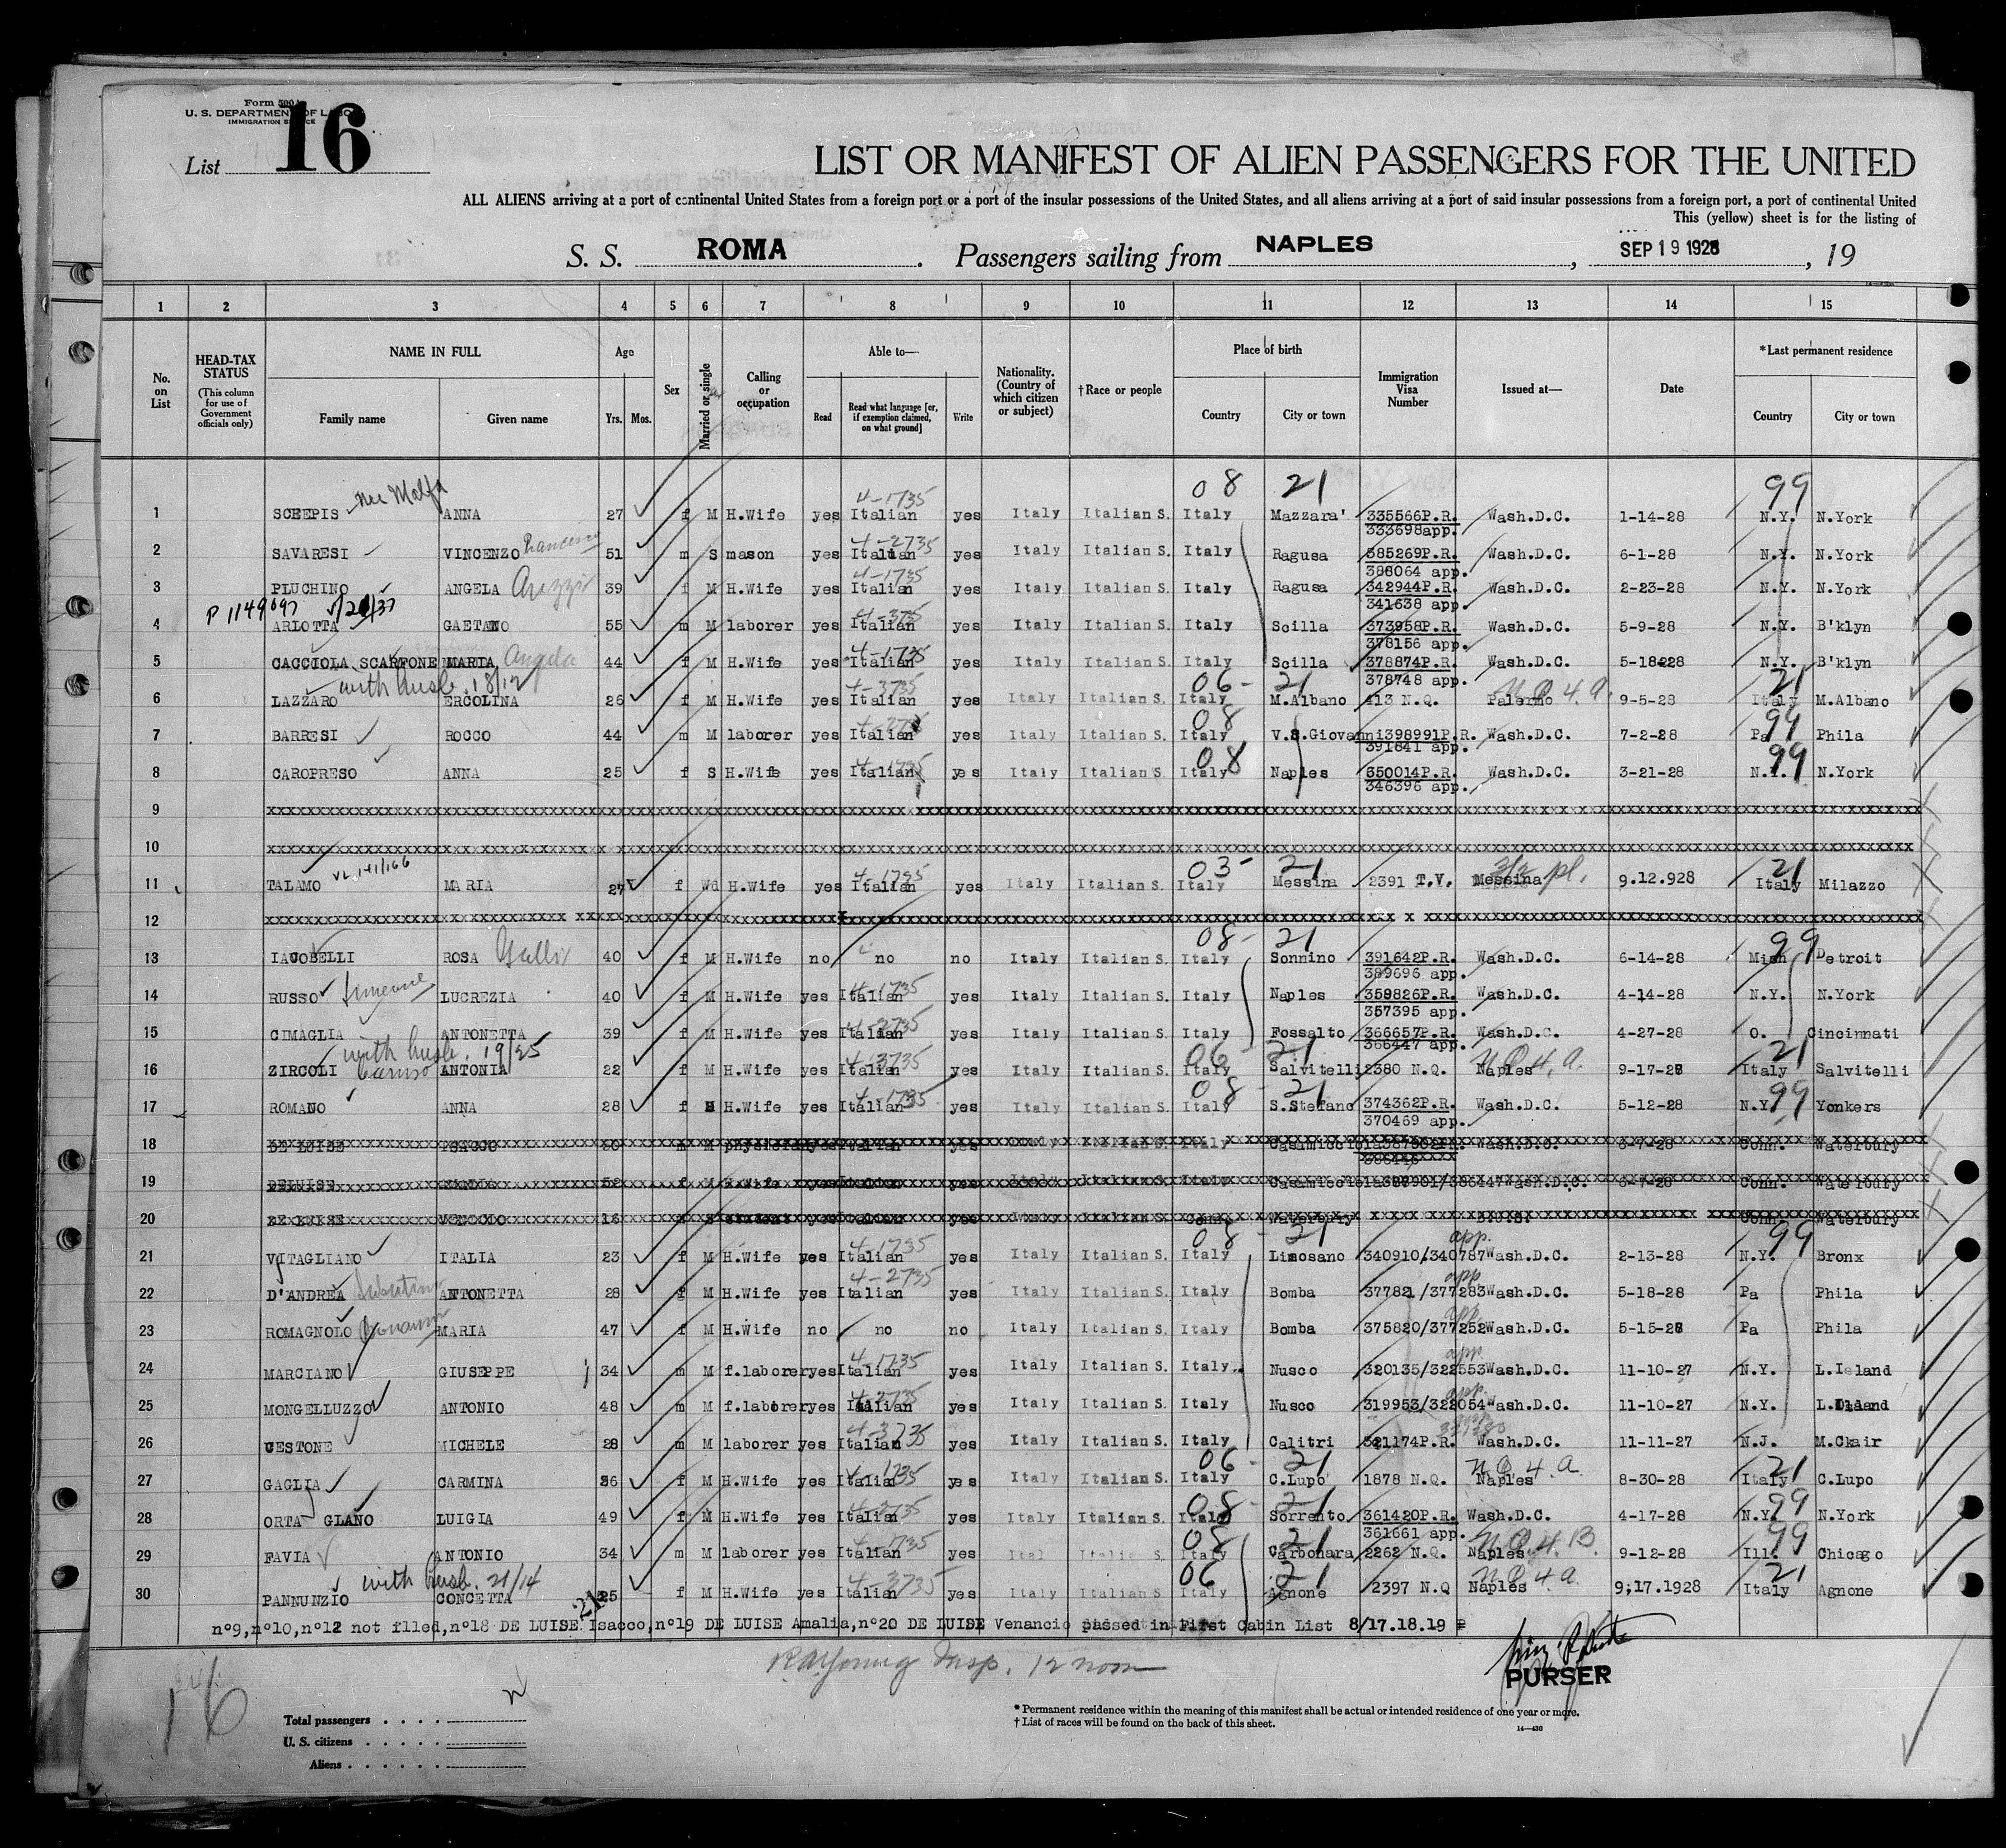 Form 500 A
U. S. DEPARTMENT OF LABOR
IMMIGRATION SERVICE
List 16
LIST OR MANIFEST OF ALIEN PASSENGERS FOR THE UNITED
ALL ALIENS arriving at a port of continental United States from a foreign port or a port of the insular possessions of the United States, and all aliens arriving at a port of said insular possessions from a foreign port, a port of continental United
This (yellow) sheet is for the listing of
S. S. ROMA. Passengers sailing from NAPLES, SEP 19 1928, 19
1 2 3 4 5 6 7 8 9 10 11 12 13 14 15
No. on List
HEAD-TAX STATUS (This column for use of Government officials only)
NAME IN FULL Family name Given name
Age Yrs. Mos.
Sex
Married or single
Calling or occupation
Able to— Read Read what language [or, if exemption claimed, on what ground] Write
Nationality. (Country of which citizen or subject)
†Race or people
Place of birth Country City or town
Immigration Visa Number
Issued at—
Date
*Last permanent residence Country City or town
nee Molfa 4-1735 08 21 99
1 SCEEPIS ANNA 27 f M H.Wife yes Italian yes Italy Italian S. Italy Mazzara' 335566P.R. Wash.D.C. 1-14-28 N.Y. N.York
333698app.
4-2735
2 SAVARESI VINCENZO Francesco 51 m S mason yes Italian yes Italy Italian S. Italy Ragusa 385269P.R. Wash.D.C. 6-1-28 N.Y. N.York
388064 app.
4-1735
3 PLUCHINO ANGELA Arezzi 39 f M H.Wife yes Italian yes Italy Italian S. Italy Ragusa 342944P.R. Wash.D.C. 2-23-28 N.Y. N.York
341638 app.
P 1149697 4-3735
4 ARLOTTA GAETANO 55 m M laborer yes Italian yes Italy Italian S. Italy Scilla 373958P.R. Wash.D.C. 5-9-28 N.Y. B'klyn
378156 app.
4-1735
5 CACCIOLA SCARFONE MARIA Angela 44 f M H.Wife yes Italian yes Italy Italian S. Italy Scilla 378874P.R. Wash.D.C. 5-18-28 N.Y. B'klyn
378748 app.
with husb. 18/12 4-3735 06- 21 N Q 4.a. 21
6 LAZZARO ERCOLINA 26 f M H.Wife yes Italian yes Italy Italian S. Italy M.Albano 413 N.Q. Palermo 9-5-28 Italy M.Albano
08 99
7 BARRESI ROCCO 44 m M laborer yes Italian yes Italy Italian S. Italy V.S.Giovanni 398991P.R. Wash.D.C. 7-2-28 Pa Phila
391841 app.
4-1735 08 99
8 CAROPRESO ANNA 25 f S H.Wife yes Italian yes Italy Italian S. Italy Naples 350014P.R. Wash.D.C. 3-21-28 N.Y. N.York
346396 app.
9
10
4-1735 03- 21 21
11 TALAMO MARIA 27 f Wd H.Wife yes Italian yes Italy Italian S. Italy Messina 2391 T.V. Messina 9.12.928 Italy Milazzo
12
08- 21 99
13 IACOBELLI ROSA 40 f M H.Wife no no no Italy Italian S. Italy Sonnino 391642P.R. Wash.D.C. 6-14-28 Mish Detroit
389696 app.
4-1735
14 RUSSO Simeone LUCREZIA 40 f M H.Wife yes Italian yes Italy Italian S. Italy Naples 359826P.R. Wash.D.C. 4-14-28 N.Y. N.York
357395 app.
4-2735
15 CIMAGLIA ANTONETTA 39 f M H.Wife yes Italian yes Italy Italian S. Italy Fossalto 366657P.R. Wash.D.C. 4-27-28 O. Cincinnati
366447 app.
with husb. 19/25 4-3735 06- 21 N Q 4.a. 21
16 ZIRCOLI Caruso ANTONIA 22 f M H.Wife yes Italian yes Italy Italian S. Italy Salvitelli 2380 N.Q. Naples 9-17-28 Italy Salvitelli
4-1735 08 - 21 99
17 ROMANO ANNA 28 f M H.Wife yes Italian yes Italy Italian S. Italy S.Stefano 374362P.R. Wash.D.C. 5-12-28 N.Y. Yonkers
370469 app.
18 DE LUISE ISACCO m M physician yes Italian yes Italy Italian S. Italy Casamicciola Wash.D.C. 6-7-28 Conn. Waterbury
19 DELUISE 52 f M H.Wife yes Italian yes Italy Italian S. Italy Casamicciola Wash.D.C. 6-7-28 Conn. Waterbury
20 DE LUISE 16 yes Italian yes Italian Conn. Waterbury Conn. Waterbury
4-1735 08 - 21 app. 99
21 VITAGLIANO ITALIA 23 f M H.Wife yes Italian yes Italy Italian S. Italy Limosano 340910/340787 Wash.D.C. 2-13-28 N.Y. Bronx
4-2735 app
22 D'ANDREA Sabatino ANTONETTA 28 f M H.Wife yes Italian yes Italy Italian S. Italy Bomba 377821/377283 Wash.D.C. 5-18-28 Pa Phila
app.
23 ROMAGNOLO MARIA 47 f M H.Wife no no no Italy Italian S. Italy Bomba 375820/377252 Wash.D.C. 5-15-28 Pa Phila
4-1735 app
24 MARCIANO GIUSEPPE 34 m M f.laborer yes Italian yes Italy Italian S. Italy Nusco 320135/322553 Wash.D.C. 11-10-27 N.Y. L.Island
4-2735 app.
25 MONGELLUZZO ANTONIO 48 m M f.laborer yes Italian yes Italy Italian S. Italy Nusco 319953/322054 Wash.D.C. 11-10-27 N.Y. L.Island
4-3735
26 CESTONE MICHELE 28 m M laborer yes Italian yes Italy Italian S. Italy Calitri 321174P.R. Wash.D.C. 11-11-27 N.J. M.Clair
4-1735 06- 21 N Q 4.a. 21
27 GAGLIA CARMINA 36 f M H.Wife yes Italian yes Italy Italian S. Italy C.Lupo 1878 N.Q. Naples 8-30-28 Italy C.Lupo
4-2735 08- 21 99
28 ORTA GIANO LUIGIA 49 f M H.Wife yes Italian yes Italy Italian S. Italy Sorrento 361420P.R. Wash.D.C. 4-17-28 N.Y. N.York
361661 app.
4-1735 08- 21 N Q 4.B. 99
29 FAVIA ANTONIO 34 m M laborer yes Italian yes Italy Italian S. Italy Carbonara 2262 N.Q. Naples 9-12-28 Ill. Chicago
with husb. 21/14 4-3735 06 21 N Q 4.a. 21
30 PANNUNZIO CONCETTA 25 f M H.Wife yes Italian yes Italy Italian S. Italy Agnone 2397 N.Q Naples 9;17.1928 Italy Agnone
n°9,n°10,n°12 not flled,n°18 DE LUISE Isacco,n°19 DE LUISE Amalia,n°20 DE LUISE Venancio passed in First Cabin List 8/17.18.19
RAYoung Insp. 12 noon
PURSER
16
Total passengers . . . .
U. S. citizens . . . . .
Aliens . . . . . .
* Permanent residence within the meaning of this manifest shall be actual or intended residence of one year or more.
† List of races will be found on the back of this sheet.
14—430